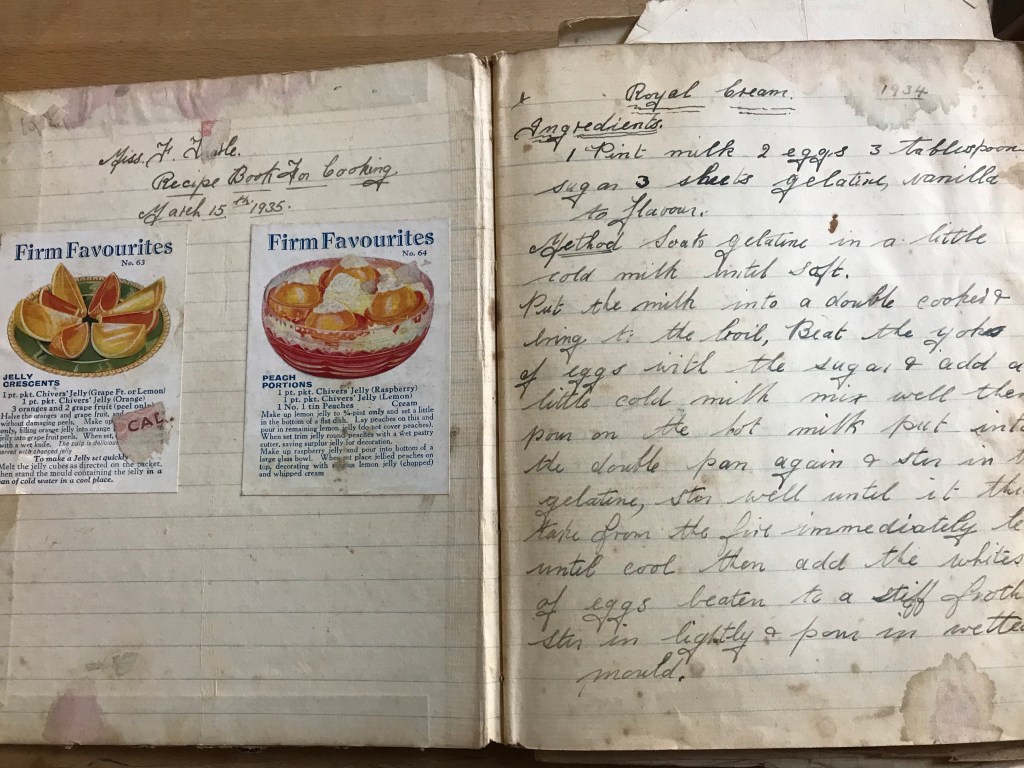 Miss. F.
Recipe Book For Cooking
March 15th 1935.
Firm Favourites
No. 63
JELLY
CRESCENTS
1 pt. pkt. Chivers' Jelly (Grape Ft. or Lemon)
1 pt. pkt. Chivers' Jelly (Orange)
3 oranges and 2 grape fruit (peel only)
Halve the oranges and grape fruit, and
without damaging peels. Make up
only, filling orange jelly into orange
jelly into grape fruit peels. When set,
with a wet knife. The pulp is delicious
served with chopped jelly
To make a Jelly set quickly
Melt the jelly cubes as directed on the packet,
then stand the mould containing the jelly in a
pan of cold water in a cool place.
CAL.
Firm Favourites
No. 64
PEACH
PORTIONS
1 pt. pkt. Chivers' Jelly (Raspberry)
1 pt. pkt. Chivers' Jelly (Lemon)
1 No. 1 tin Peaches Cream
Make up lemon jelly to ¾-pint only and set a little
in the bottom of a flat dish. Lay peaches on this and
pour in remaining lemon jelly (do not cover peaches).
When set trim jelly round peaches with a wet pastry
cutter, saving surplus jelly for decoration.
Make up raspberry jelly and pour into bottom of a
large glass bowl. When set place jellied peaches on
top, decorating with lemon jelly (chopped)
and whipped cream
x Royal Cream. 1934
Ingredients.
1 Pint milk 2 eggs 3 tablespoon
sugar 3 sheets gelatine, vanilla
to flavour.
Method Soak gelatine in a little
cold milk until soft.
Put the milk into a double cooker &
bring to the boil, Beat the yoks
of eggs with the sugar & add a
little cold milk mix well then
pour on the hot milk put into
the double pan again & stir in t
gelatine, stir well until it the
take from the fire immediately le
until cool then add the whites
of eggs beaten to a stiff froth
stir in lightly & pour in wetted
mould.